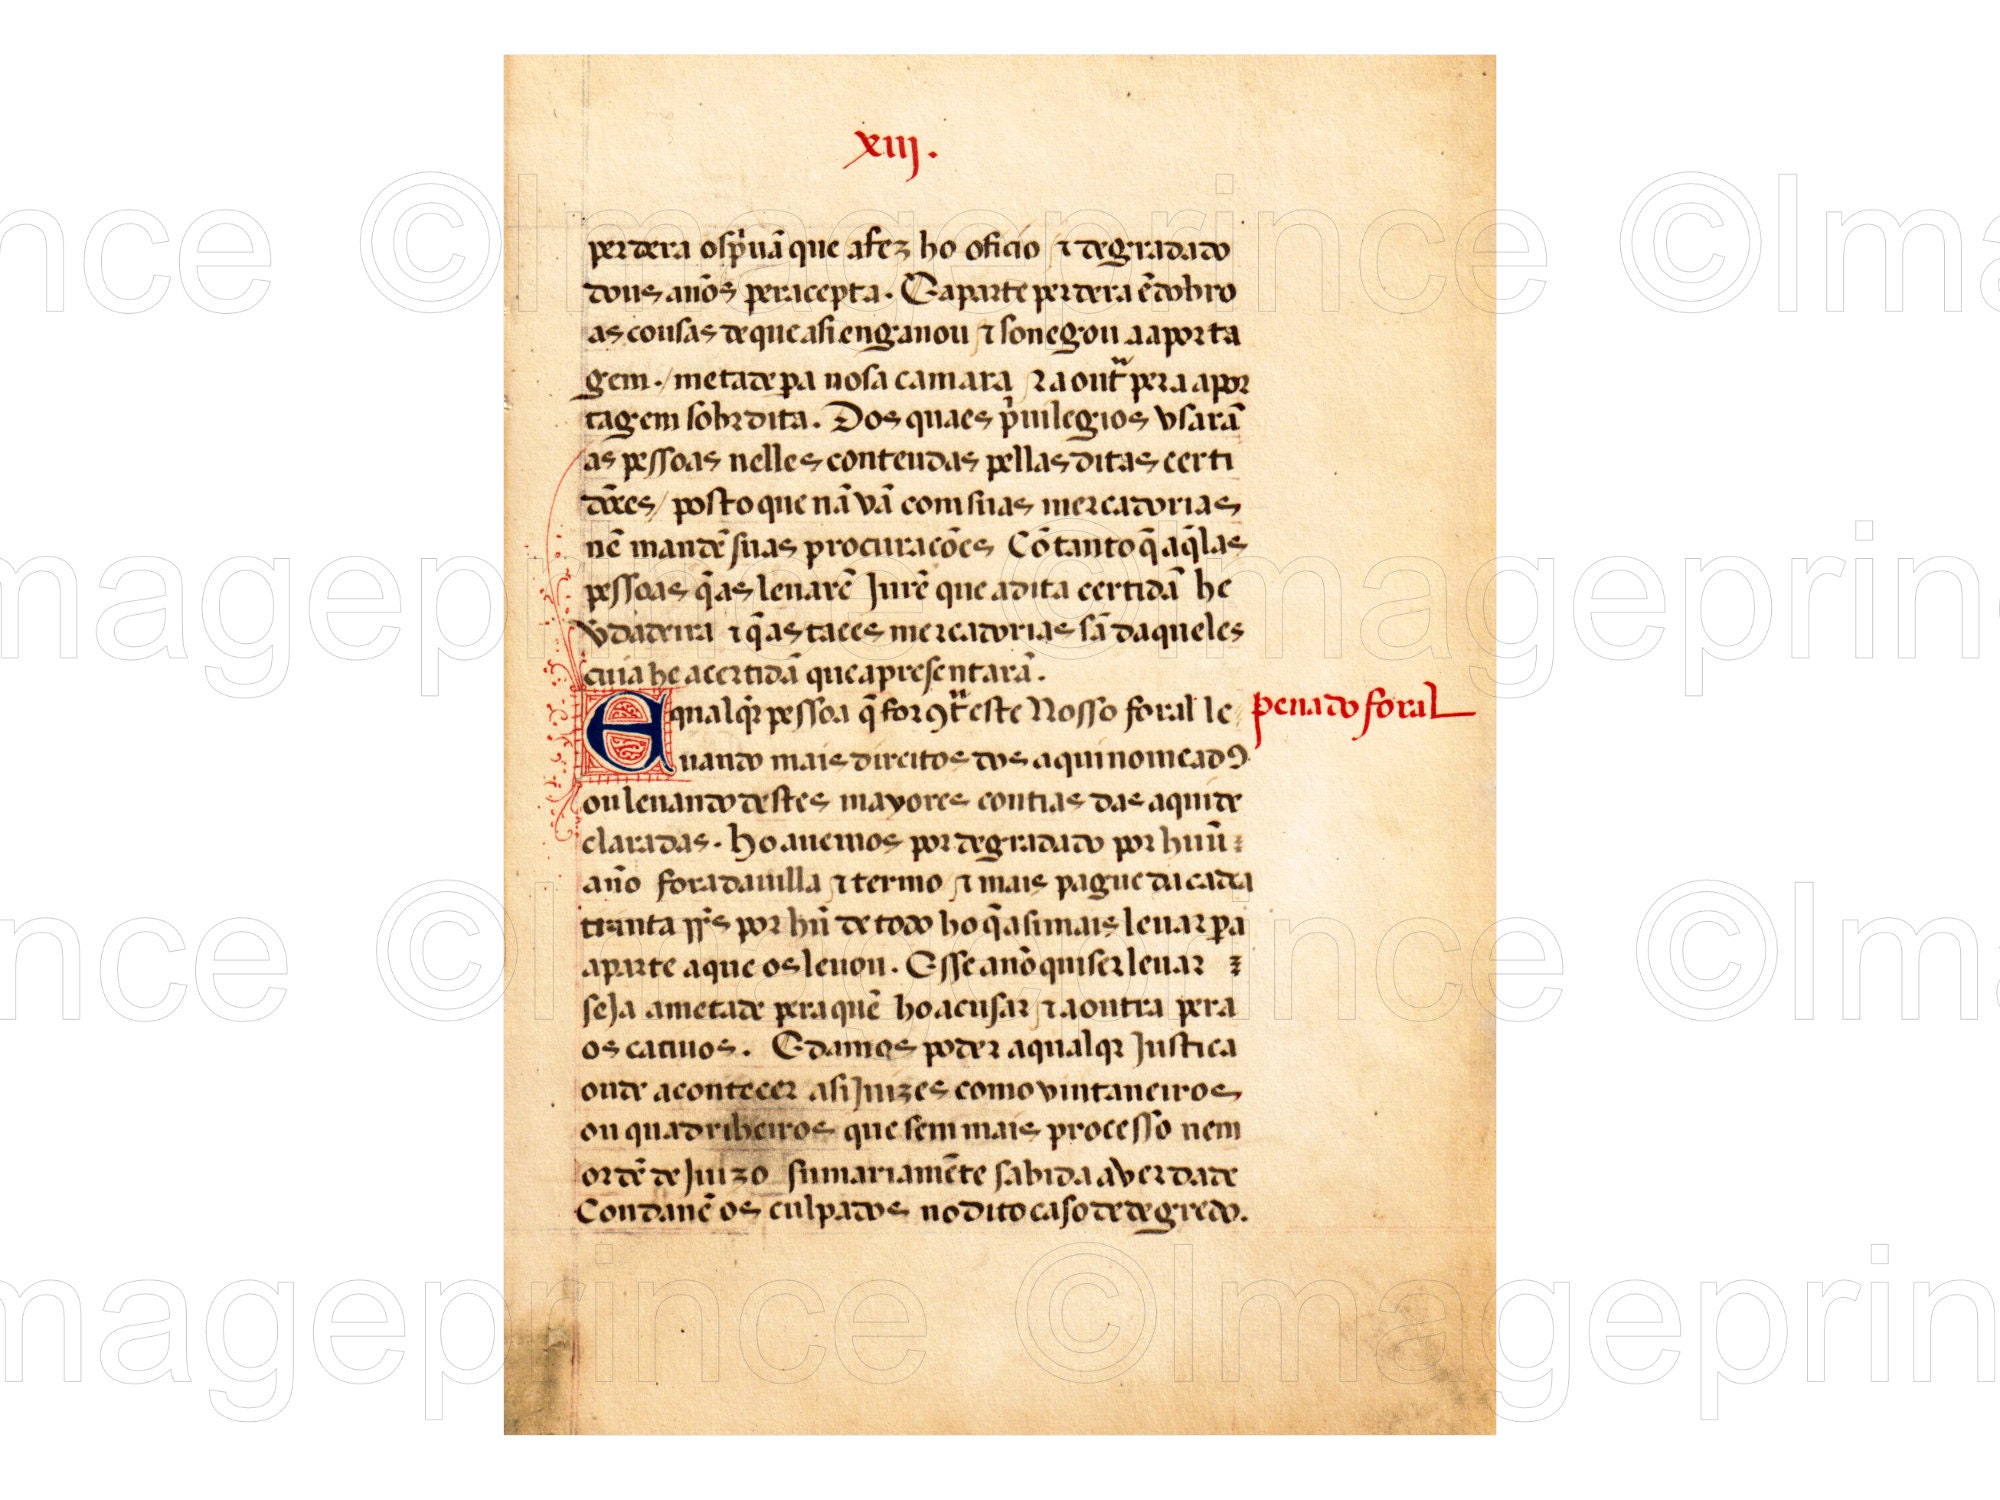 xiij.
perdera o sp̃uã que a fez ho oficio ⁊ degradado
dous anõs pera cepta. E a parte perdera ẽ dobro
as cousas de que asi enganou ⁊ sonegou a a porta
gem. / metade pa nosa camara ⁊ a outª pera a por
tagem sobrdita. Dos quaes p̃uilegios vsarã
as pessoas nelles conteudas pellas ditas certi
dõces / posto que nã vã com suas mercadorias
nẽ mandẽ suas procuracões Cõ tanto q̃ aq̃las
pessoas q̃ as leuarẽ Jurẽ que a dita certidã he
ṽdadeira ⁊ q̃ as taees mercadorias sã daqueles
cuia he a certidã que apresentarã.
E qualqr̃ pessoa q̃ for 9tª este Nosso foral le
penado foral
uando mais direitos dos aqui nomeados
ou leuando destes mayores contias das aqui de
claradas. ho auemos por degradado por huũ
anõ fora da uilla ⁊ termo ⁊ mais pague da cadea
trinta rr̃s por hũ de todo ho q̃ asi mais leuar pa
a parte a que os leuou. E sse a nõ quiser leuar
seJa a metade pera quẽ ho acusar ⁊ a outra pera
os catiuos. E damos poder a qualqr Justica
onde acontecer asi Juizes como vintaneiros
ou quadrilheiros que sem mais processo nem
ordẽ de Juizo sumariamẽte sabida a verdade
Condanẽ os culpados no dito caso de degredo.
©Imageprince